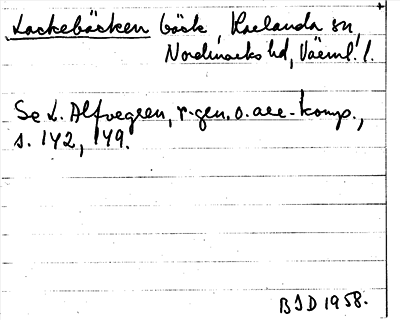 Lackebäcken bäck, Karlanda sn,
Nordmarks hd, Värml. l.
Se L. Alfvegren, r-gen. o. are-komp.,
s. 142, 149.
BID 1958.